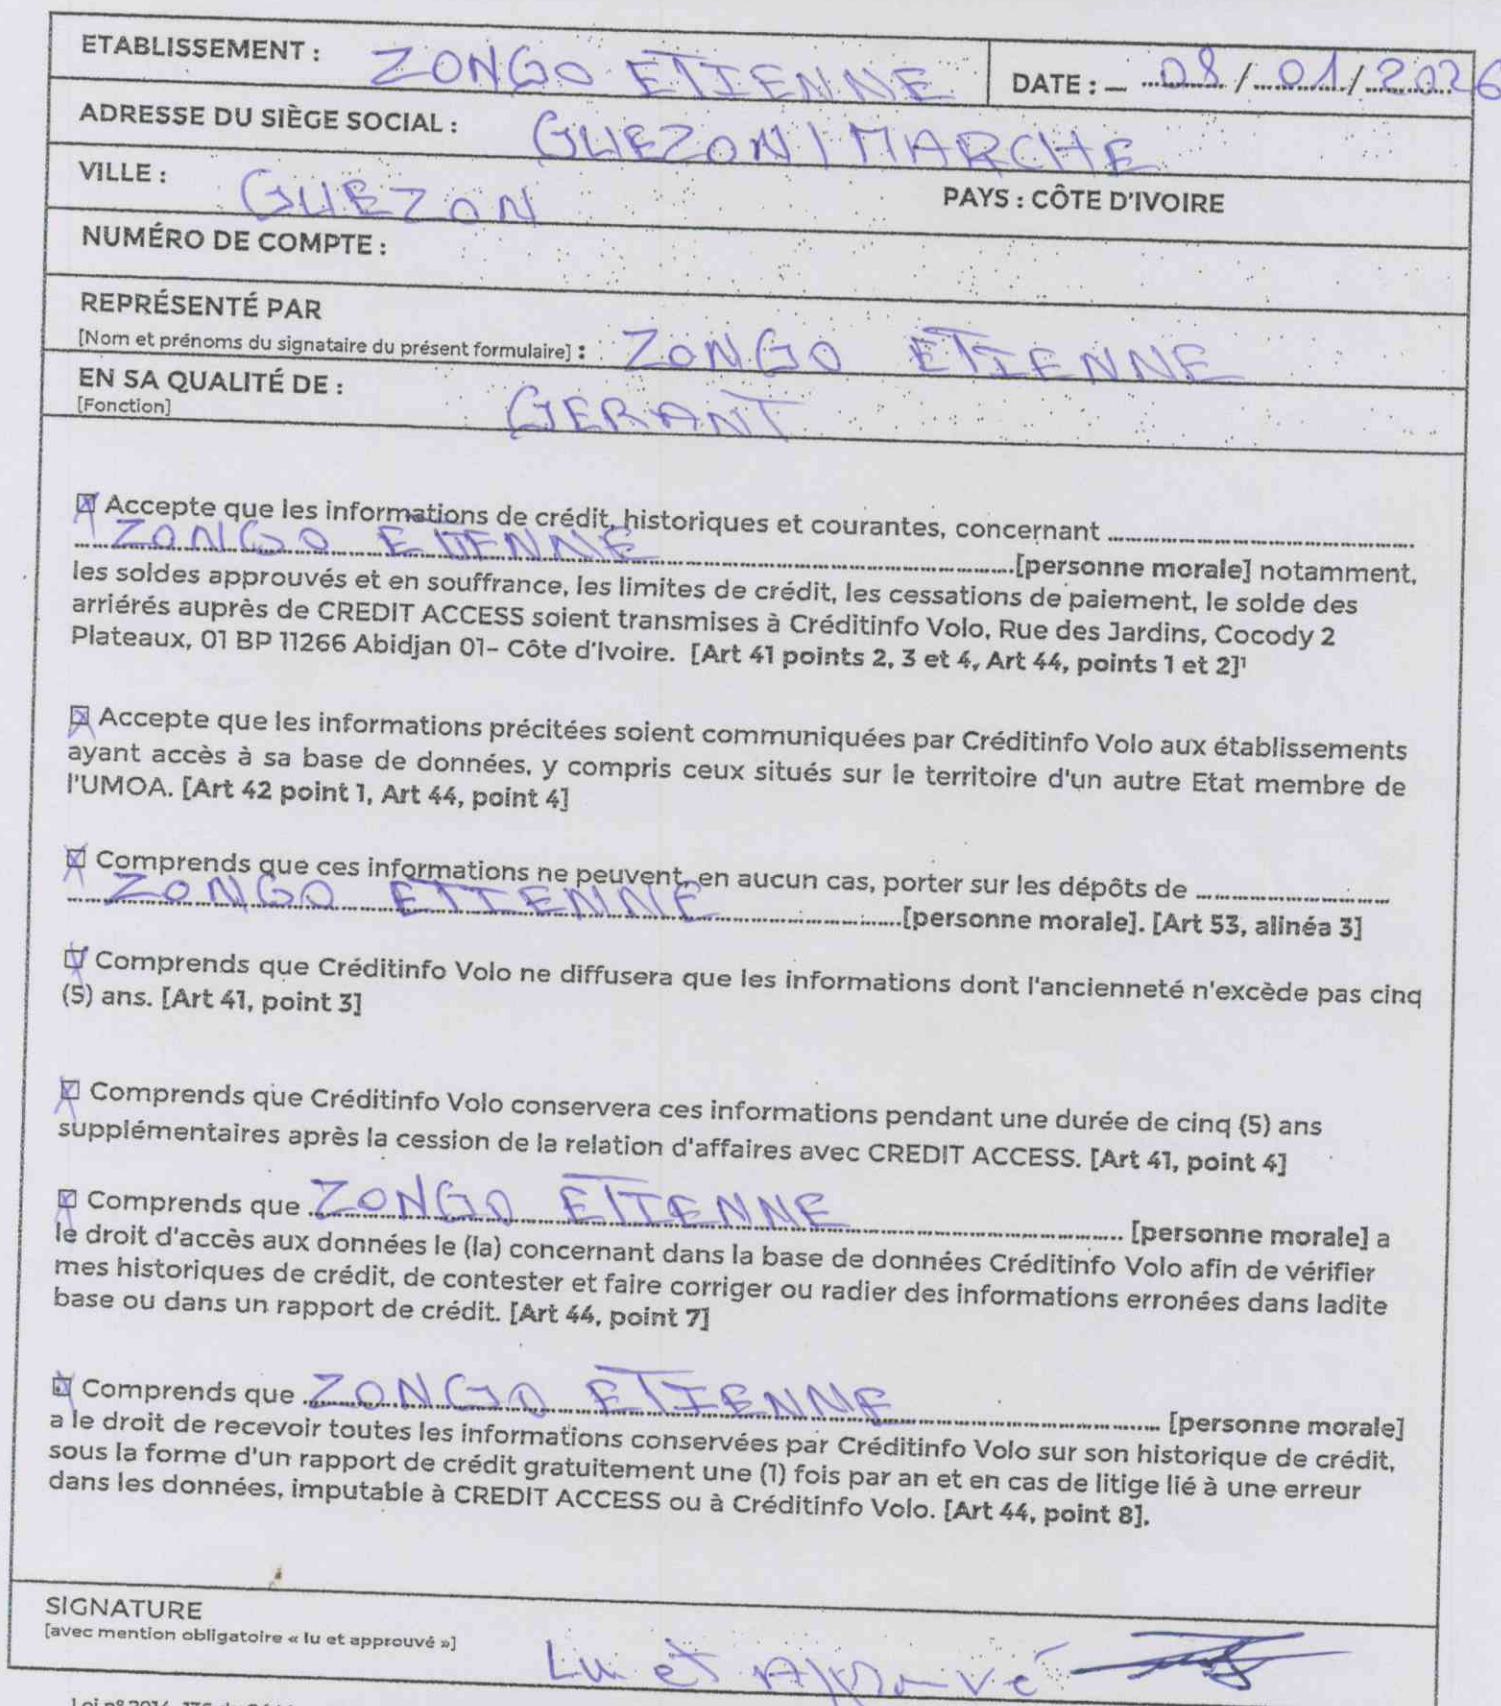 ETABLISSEMENT : ZONGO ETIENNE DATE : – 08 / 01 / 2026
ADRESSE DU SIÈGE SOCIAL : GUEZON / MARCHE
VILLE : GUEZON PAYS : CÔTE D'IVOIRE
NUMÉRO DE COMPTE :
REPRÉSENTÉ PAR
[Nom et prénoms du signataire du présent formulaire] : ZONGO ETIENNE
EN SA QUALITÉ DE : GERANT
[Fonction]
Accepte que les informations de crédit, historiques et courantes, concernant
ZONGO ETIENNE [personne morale] notamment,
les soldes approuvés et en souffrance, les limites de crédit, les cessations de paiement, le solde des
arriérés auprès de CREDIT ACCESS soient transmises à Créditinfo Volo, Rue des Jardins, Cocody 2
Plateaux, 01 BP 11266 Abidjan 01– Côte d'Ivoire. [Art 41 points 2, 3 et 4, Art 44, points 1 et 2]¹
Accepte que les informations précitées soient communiquées par Créditinfo Volo aux établissements
ayant accès à sa base de données, y compris ceux situés sur le territoire d'un autre Etat membre de
l'UMOA. [Art 42 point 1, Art 44, point 4]
Comprends que ces informations ne peuvent, en aucun cas, porter sur les dépôts de
ZONGO ETIENNE [personne morale]. [Art 53, alinéa 3]
Comprends que Créditinfo Volo ne diffusera que les informations dont l'ancienneté n'excède pas cinq
(5) ans. [Art 41, point 3]
Comprends que Créditinfo Volo conservera ces informations pendant une durée de cinq (5) ans
supplémentaires après la cession de la relation d'affaires avec CREDIT ACCESS. [Art 41, point 4]
Comprends que ZONGO ETIENNE [personne morale] a
le droit d'accès aux données le (la) concernant dans la base de données Créditinfo Volo afin de vérifier
mes historiques de crédit, de contester et faire corriger ou radier des informations erronées dans ladite
base ou dans un rapport de crédit. [Art 44, point 7]
Comprends que ZONGO ETIENNE [personne morale]
a le droit de recevoir toutes les informations conservées par Créditinfo Volo sur son historique de crédit,
sous la forme d'un rapport de crédit gratuitement une (1) fois par an et en cas de litige lié à une erreur
dans les données, imputable à CREDIT ACCESS ou à Créditinfo Volo. [Art 44, point 8].
SIGNATURE
[avec mention obligatoire « lu et approuvé »]
Lu et Approuvé
Loi n° 2014-136 du